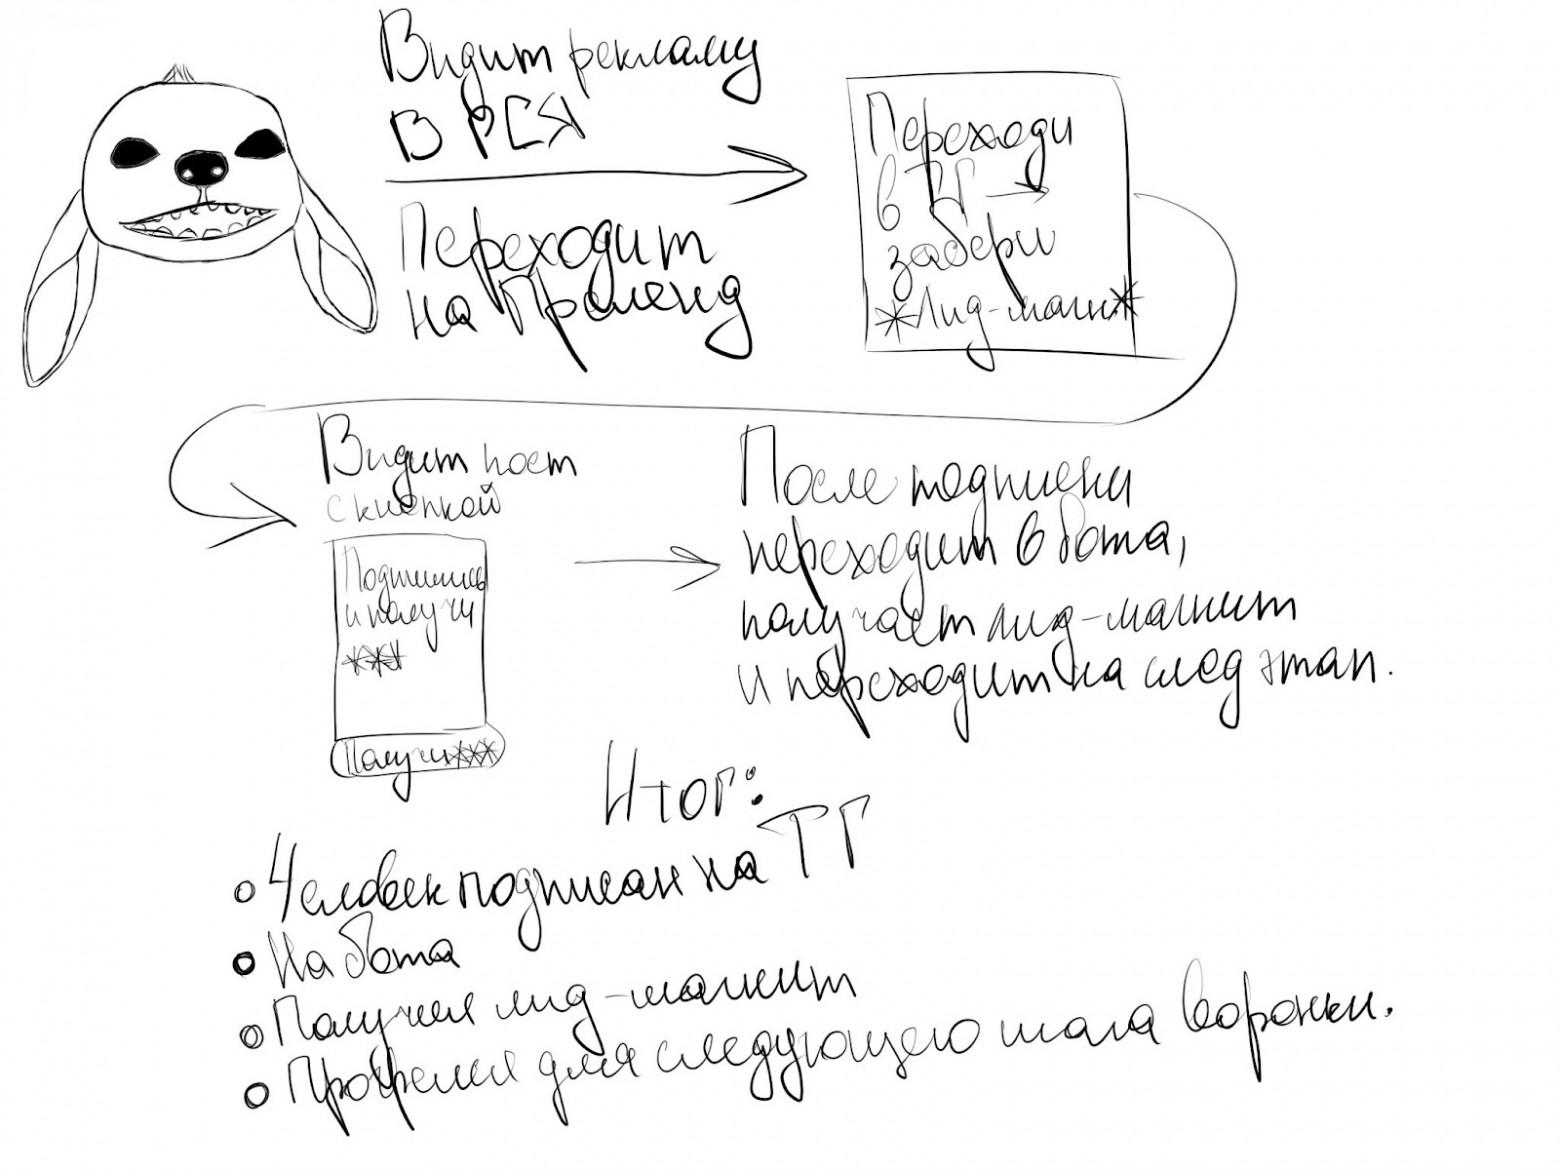 Видит рекламу
в РСЯ
Переходит
на Преленд
Переходи
в ТГ →
забери
*Лид-магн*
Видит пост
с кнопкой
Подпишись
и получи
***
Получи ***
После подписки
переходит в бота,
получает лид-магнит
и переходит на след этап.
Итог:
Человек подписан на ТГ
На бота
Получил лид-магнит
Прогрелся для следующего шага воронки.